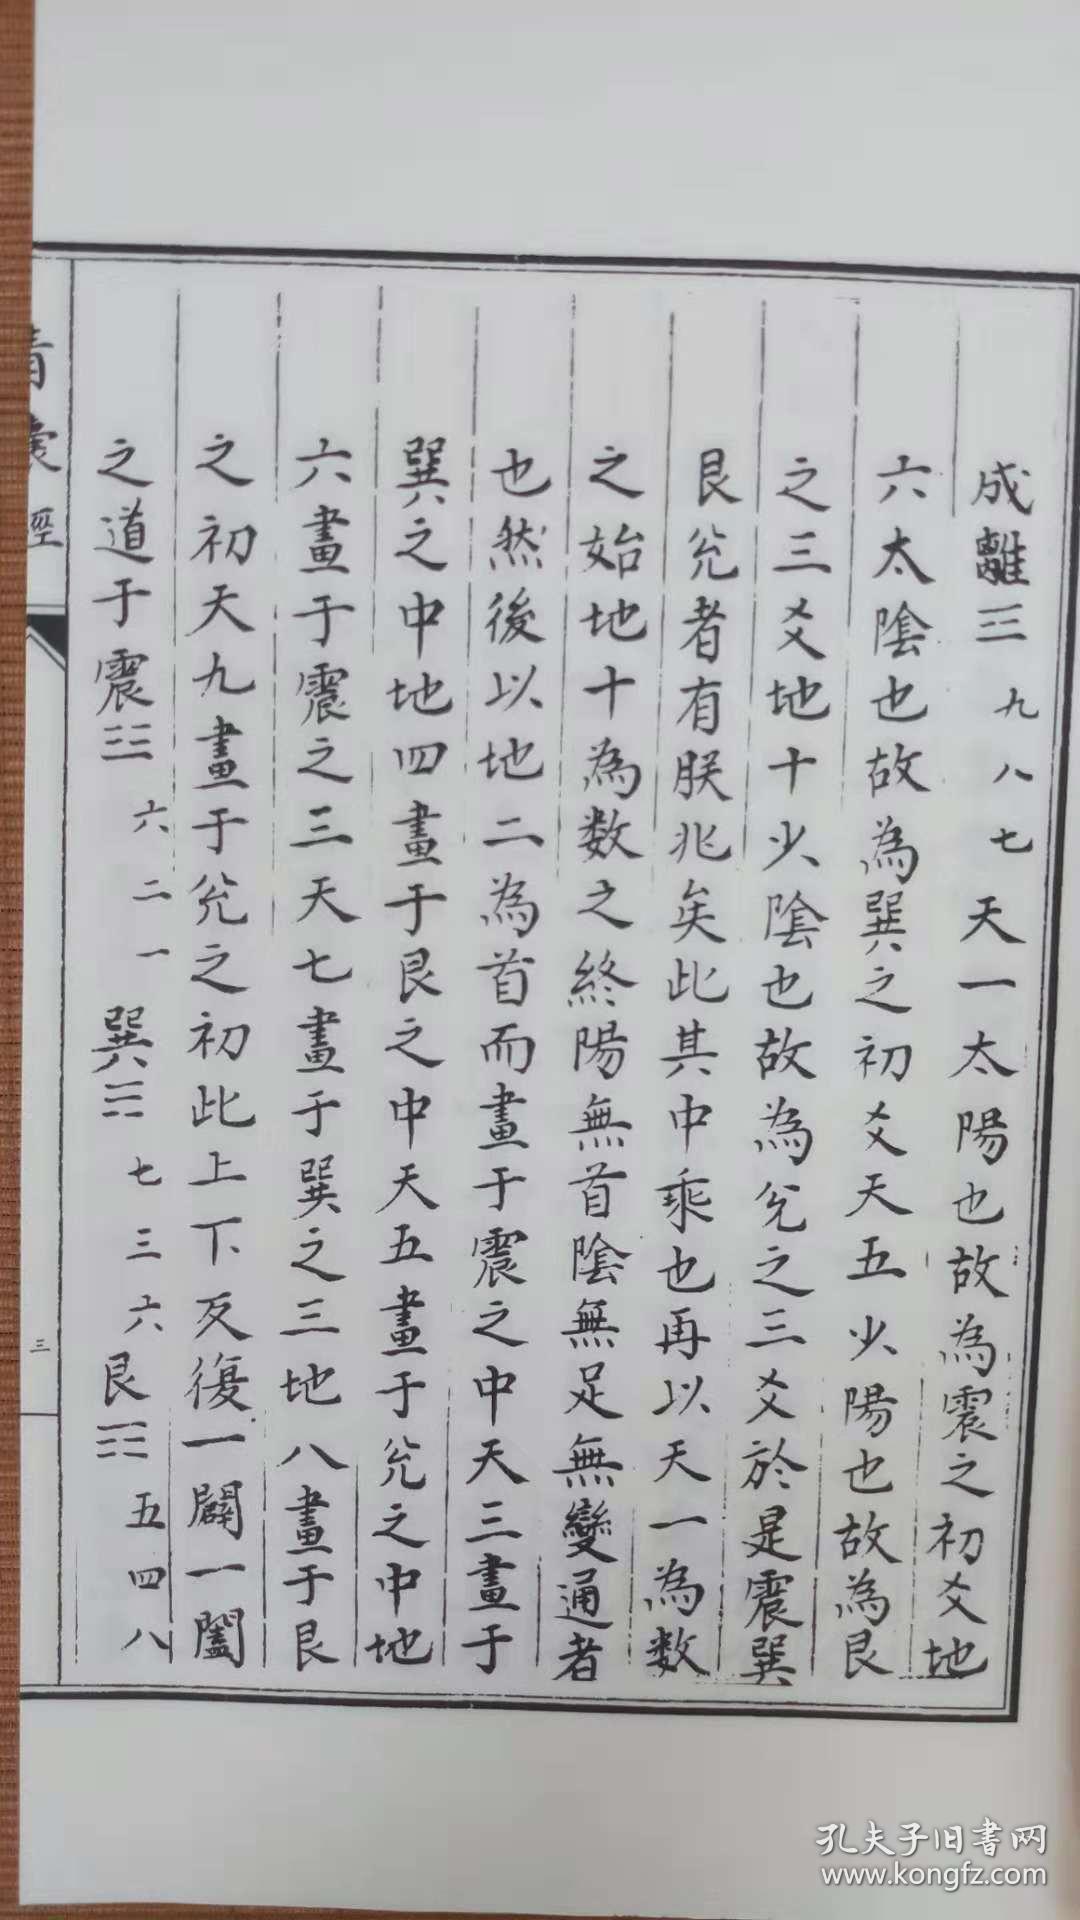 成離☲九八七天一太陽也故為震之初爻地
六太陰也故為巽之初爻天五少陽也故為艮
之三爻地十少陰也故為兌之三爻於是震巽
艮兌者有朕兆矣此其中乘也再以天一為数
之始地十為数之終陽無首陰無足無變通者
也然後以地二為首而畫于震之中天三畫于
巽之中地四畫于艮之中天五畫于兌之中地
六畫于震之三天七畫于巽之三地八畫于艮
之初天九畫于兌之初此上下反復一闢一闔
之道于震☳六二一巽☴七三六艮☶五四八
青囊經
三
孔夫子旧書网
www.kongfz.com